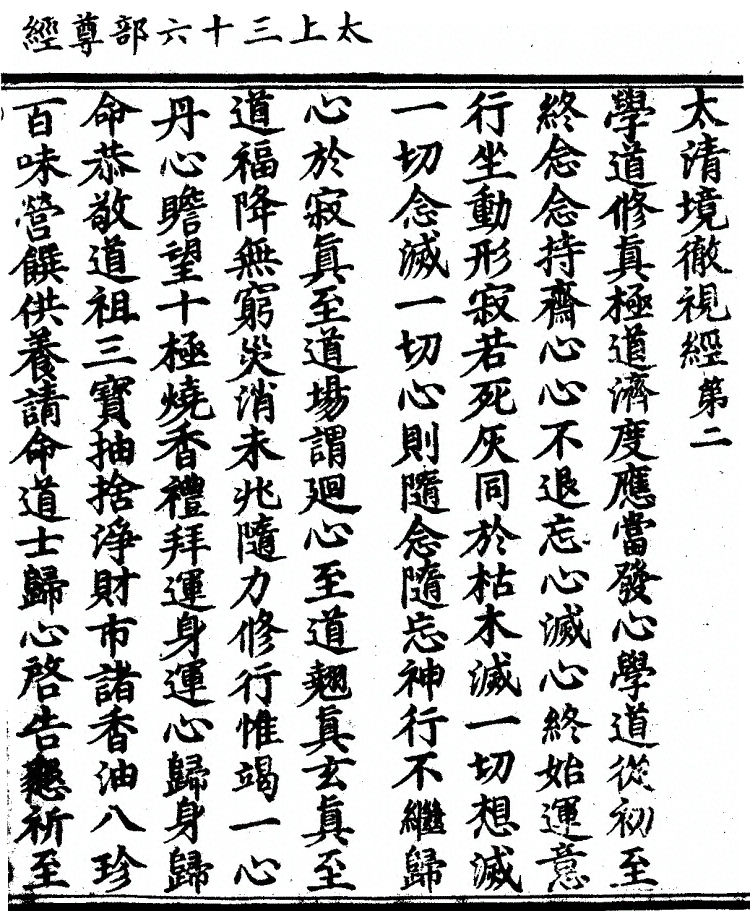 太上三十六部尊經
太清境徹視經第二
學道修真極道濟度應當發心學道從初至
終念念持齋心心不退忘心滅心終始運意
行坐動形寂若死灰同於枯木滅一切想滅
一切念滅一切心則隨念隨忘神行不繼歸
心於寂真至道場謂迴心至道翹真玄真至
道福降無窮災消未兆隨力修行惟竭一心
丹心瞻望十極燒香禮拜運身運心歸身歸
命恭敬道祖三寶抽捨淨財市諸香油八珍
百味營饌供養請命道士歸心啓告懇祈至